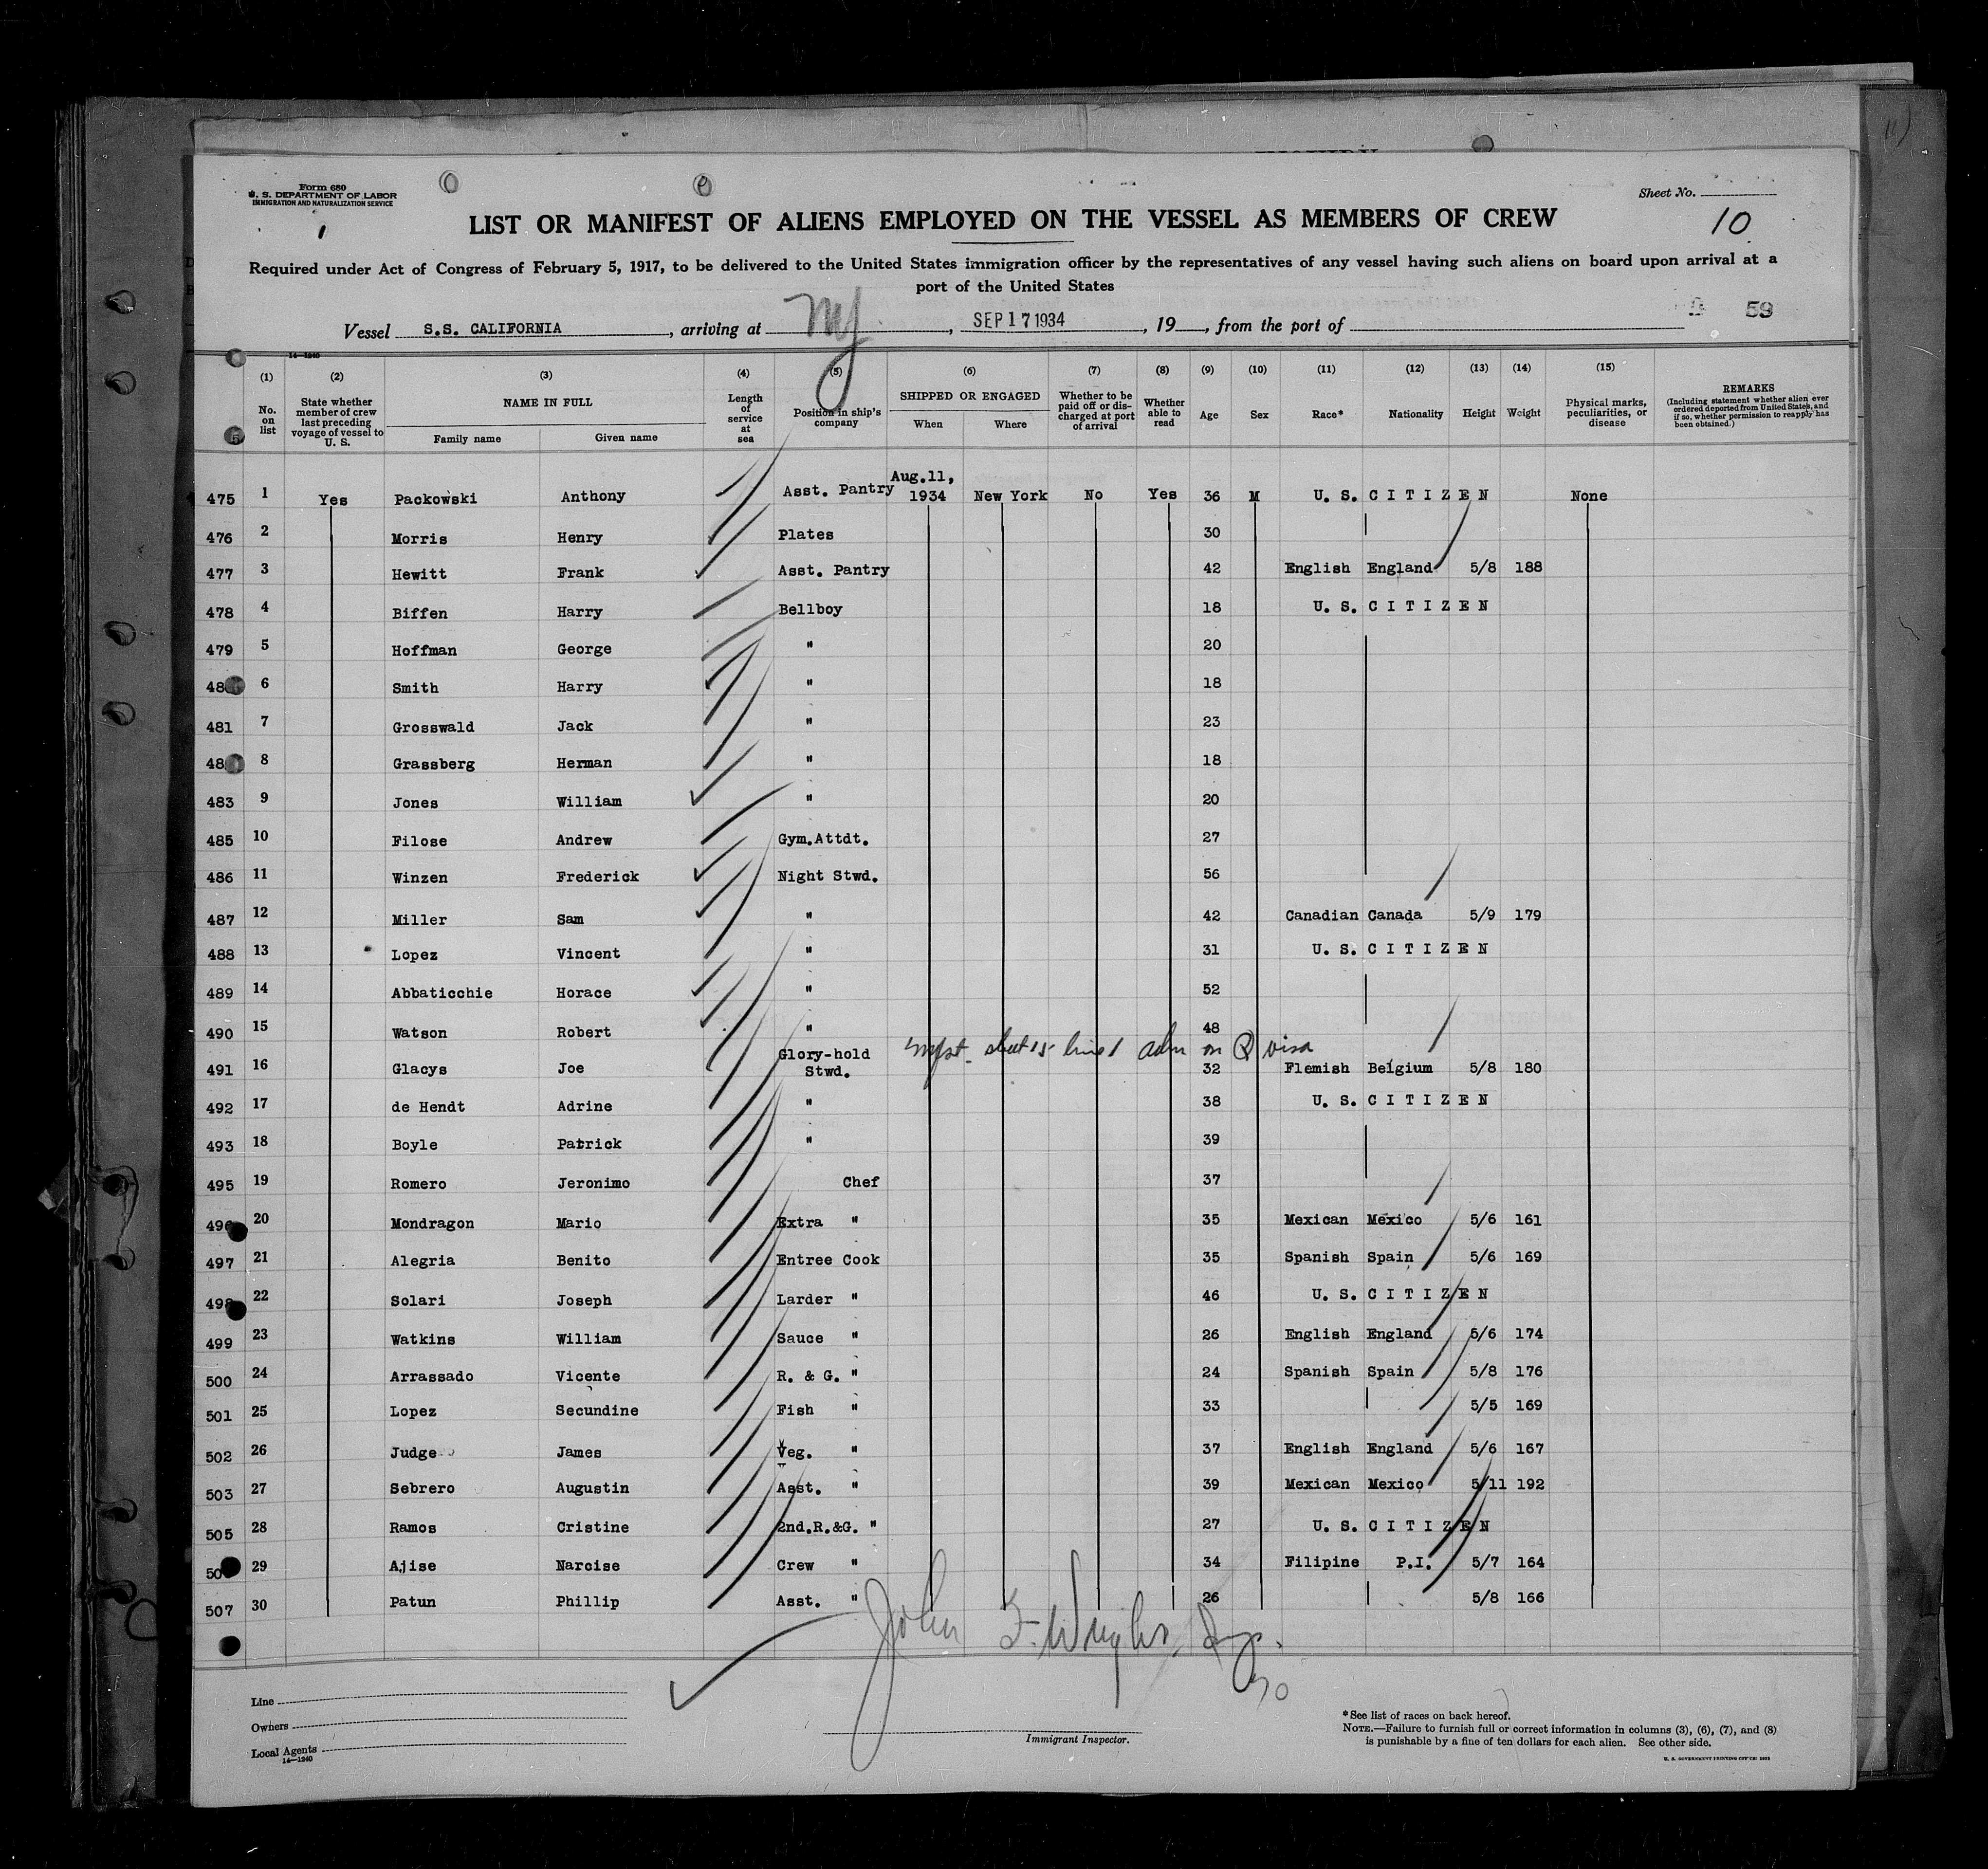 Form 680
U. S. DEPARTMENT OF LABOR
IMMIGRATION AND NATURALIZATION SERVICE
Sheet No.
10
LIST OR MANIFEST OF ALIENS EMPLOYED ON THE VESSEL AS MEMBERS OF CREW
Required under Act of Congress of February 5, 1917, to be delivered to the United States immigration officer by the representatives of any vessel having such aliens on board upon arrival at a
port of the United States
59
Vessel S.S. CALIFORNIA, arriving at NY, SEP 17 1934, 19, from the port of
14—1240
(1) (2) (3) (4) (5) (6) (7) (8) (9) (10) (11) (12) (13) (14) (15)
No. on list
State whether member of crew last preceding voyage of vessel to U. S.
NAME IN FULL
Family name Given name
Length of service at sea
Position in ship's company
SHIPPED OR ENGAGED
When Where
Whether to be paid off or discharged at port of arrival
Whether able to read
Age Sex Race* Nationality Height Weight
Physical marks, peculiarities, or disease
REMARKS
(Including statement whether alien ever ordered deported from United States, and if so, whether permission to reapply has been obtained.)
475 1 Yes Packowski Anthony Asst. Pantry Aug.11, 1934 New York No Yes 36 M U. S. CITIZEN None
476 2 Morris Henry Plates 30
477 3 Hewitt Frank Asst. Pantry 42 English England 5/8 188
478 4 Biffen Harry Bellboy 18 U. S. CITIZEN
479 5 Hoffman George " 20
48 6 Smith Harry " 18
481 7 Grosswald Jack " 23
48 8 Grassberg Herman " 18
483 9 Jones William " 20
485 10 Filose Andrew Gym.Attdt. 27
486 11 Winzen Frederick Night Stwd. 56
487 12 Miller Sam " 42 Canadian Canada 5/9 179
488 13 Lopez Vincent " 31 U. S. CITIZEN
489 14 Abbaticchie Horace " 52
490 15 Watson Robert " 48
sheet 15 line 1 adm on Q visa
491 16 Glacys Joe Glory-hold Stwd. 32 Flemish Belgium 5/8 180
492 17 de Hendt Adrine " 38 U. S. CITIZEN
493 18 Boyle Patrick " 39
495 19 Romero Jeronimo Chef 37
496 20 Mondragon Mario Extra " 35 Mexican Mexico 5/6 161
497 21 Alegria Benito Entree Cook 35 Spanish Spain 5/6 169
498 22 Solari Joseph Larder " 46 U. S. CITIZEN
499 23 Watkins William Sauce " 26 English England 5/6 174
500 24 Arrassado Vicente R. & G. " 24 Spanish Spain 5/8 176
501 25 Lopez Secundine Fish " 33 5/5 169
502 26 Judge James Veg. " 37 English England 5/6 167
503 27 Sebrero Augustin Asst. " 39 Mexican Mexico 5/11 192
505 28 Ramos Cristine 2nd.R.&G. " 27 U. S. CITIZEN
50 29 Ajise Narcise Crew " 34 Filipine P.I. 5/7 164
507 30 Patun Phillip Asst. " 26 5/8 166
John F. Wright, Insp.
30
Line
Owners
Local Agents
14—1240
Immigrant Inspector.
*See list of races on back hereof.
NOTE.—Failure to furnish full or correct information in columns (3), (6), (7), and (8)
is punishable by a fine of ten dollars for each alien. See other side.
U. S. GOVERNMENT PRINTING OFFICE: 1931